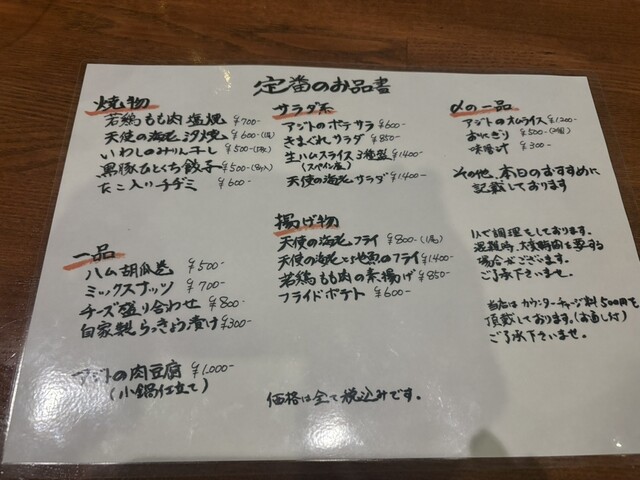 定番のお品書
焼物
若鶏もも肉塩焼 ¥700-
天使の海老 汐焼 ¥600-(1尾)
いわしのみりん干し ¥500-
黒豚ひとくち餃子 ¥500-
たこ入りチヂミ ¥600-
一品
ハム胡瓜巻 ¥500-
ミックスナッツ ¥700-
チーズ盛り合わせ ¥800-
自家製らっきょう漬け ¥300-
アジトの肉豆腐 ¥1.000-
(小鍋仕立て)
サラダ系
アジトのポテサラ ¥600-
きまぐれサラダ ¥850-
生ハムスライス3種盛 ¥1400-
(スペイン産)
天使の海老サラダ ¥1.400-
揚げ物
天使の海老フライ ¥800-(1尾)
天使の海老と地魚のフライ ¥1.400-
若鶏もも肉の素揚げ ¥850-
フライドポテト ¥600-
価格は全て税込みです。
〆の一品
アジトのオムライス ¥1.200-
おにぎり ¥500-(2個)
味噌汁 ¥300-
その他、本日のおすすめに
記載しております
1人で調理をしております。
混雑時、大変時間を要する
場合がございます。
ご了承下さいませ。
当店はカウンターチャージ料500円を
頂戴しております。(お通し付)
ご了承下さいませ。